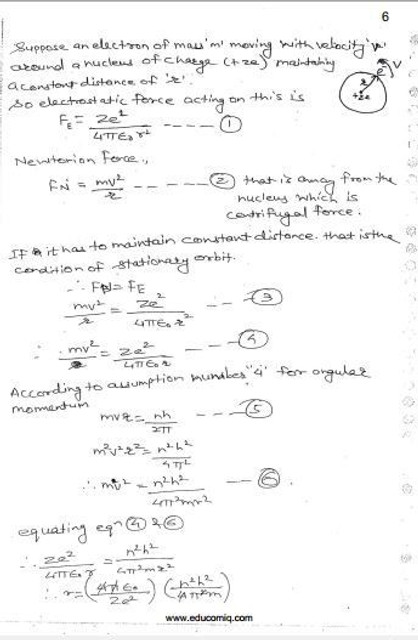 6
Suppose an electron of mass 'm' moving with velocity 'v'
around a nucleus of charge (+ze) maintaing
a constant distance of 'r'.
e v
r
+ze
so electrostatic force acting on this is
FE = Ze² / 4πε₀r² ----- ①
Newtonion force.,
FN = mv² / r ----- ② that is away from the
nucleus which is
centrifugal force.
If it has to maintain constant distance. that is the
condition of stationary orbit.
∴ FN = FE
mv² / r = Ze² / 4πε₀r² --- ③
∴ mv² = Ze² / 4πε₀r --- ④
According to assumption number "4" for angular
momentum
mvr = nh / 2π --- ⑤
m²v²r² = n²h² / 4π²
∴ mv² = n²h² / 4π²mr² --- ⑥.
equating eqⁿ ④ & ⑥
∴ Ze² / 4πε₀r = n²h² / 4π²mr²
∴ r = (4πε₀ / Ze²) (n²h² / 4π²m)
www.educomiq.com